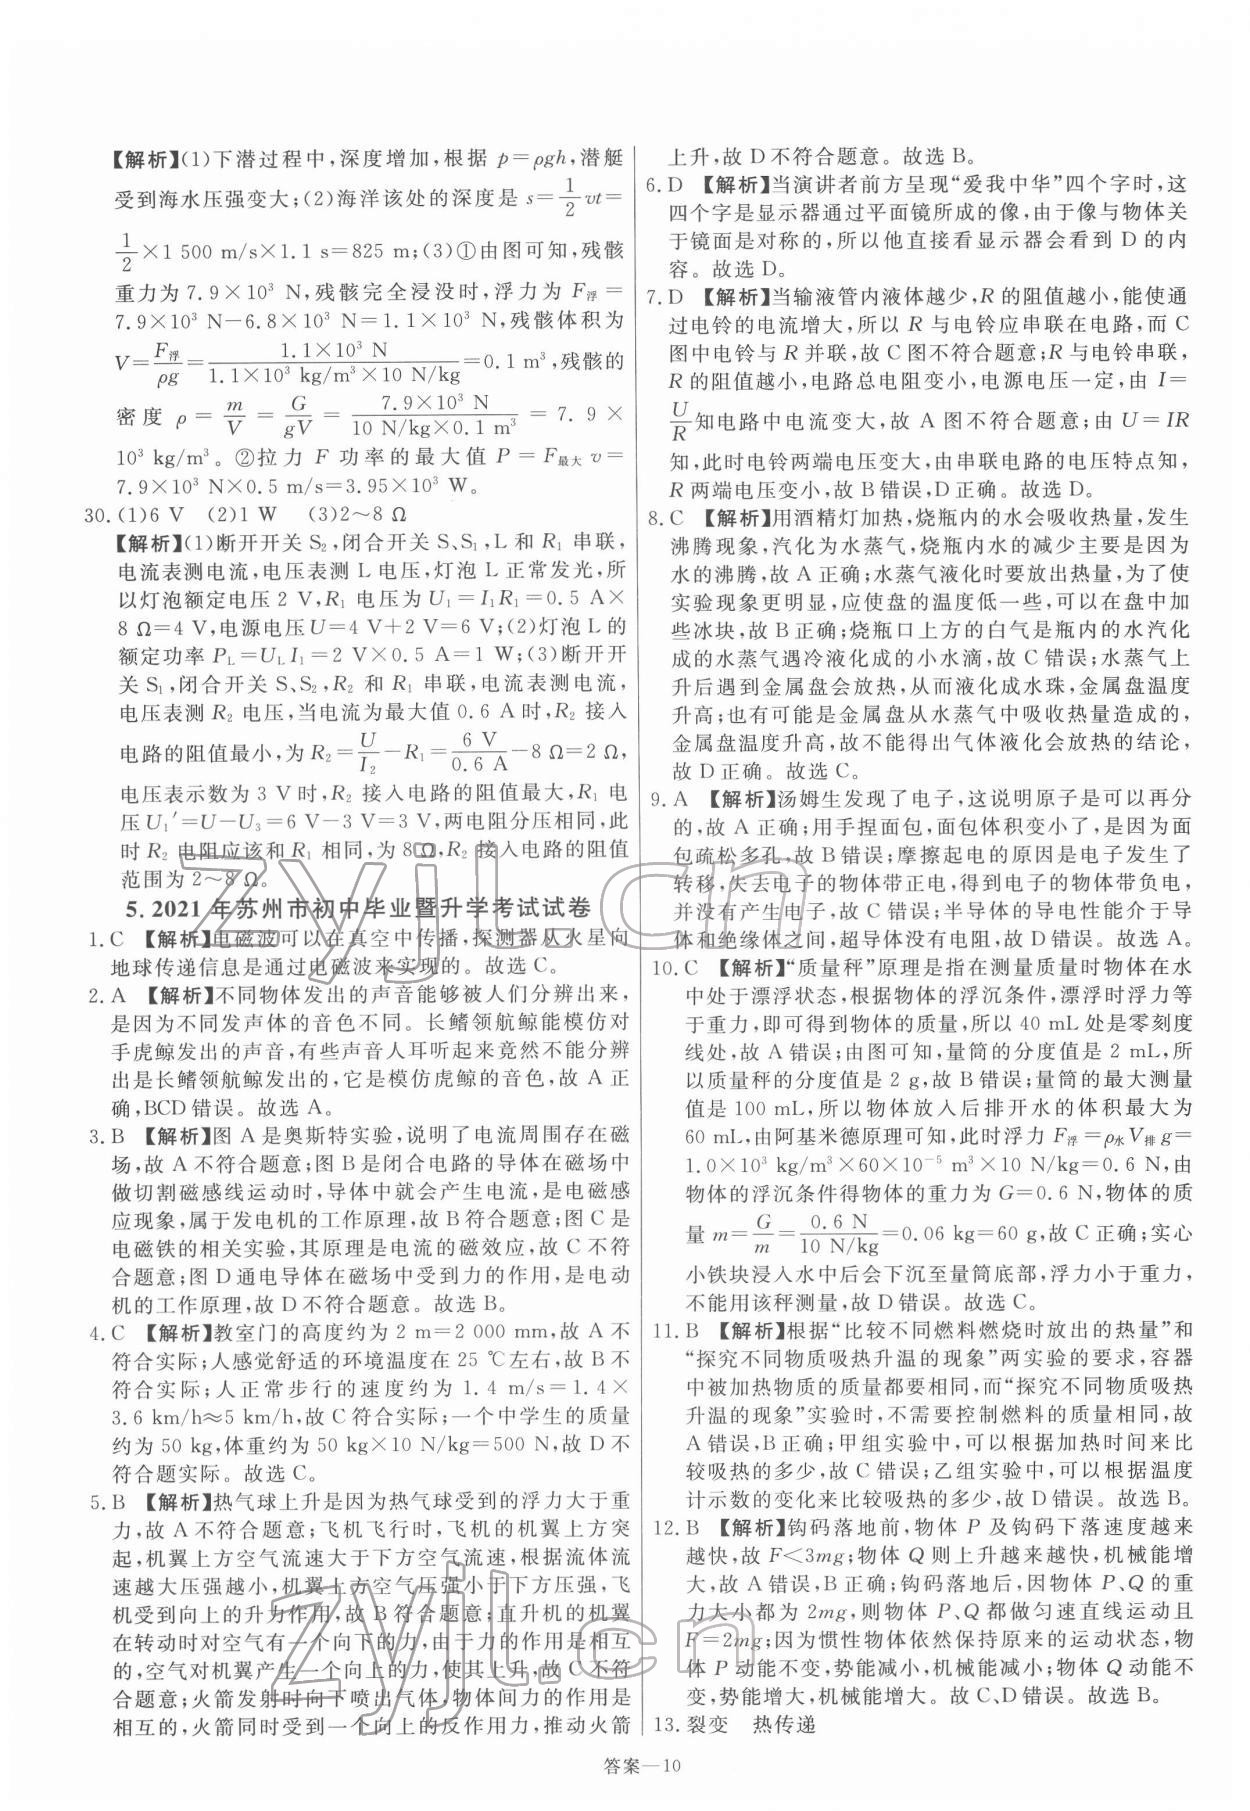 【解析】(1)下潜过程中,深度增加,根据 p=ρgh,潜艇
受到海水压强变大;(2)海洋该处的深度是 s=1/2 vt=
1/2×1 500 m/s×1.1 s=825 m;(3)①由图可知,残骸
重力为 7.9×10³ N,残骸完全浸没时,浮力为 F浮=
7.9×10³ N-6.8×10³ N=1.1×10³ N,残骸体积为
V=F浮/ρg=1.1×10³ N/1.1×10³ kg/m³×10 N/kg=0.1 m³,残骸的
密度 ρ=m/V=G/gV=7.9×10³ N/10 N/kg×0.1 m³=7.9×
10³ kg/m³。②拉力 F 功率的最大值 P=F最大v=
7.9×10³ N×0.5 m/s=3.95×10³ W。
30.(1)6 V (2)1 W (3)2～8 Ω
【解析】(1)断开开关 S₂,闭合开关 S、S₁,L 和 R₁ 串联,
电流表测电流,电压表测 L 电压,灯泡 L 正常发光,所
以灯泡额定电压 2 V,R₁ 电压为 U₁=I₁R₁=0.5 A×
8 Ω=4 V,电源电压U=4 V+2 V=6 V;(2)灯泡 L 的
额定功率 PL=ULI₁=2 V×0.5 A=1 W;(3)断开开
关 S₁,闭合开关 S、S₂,R₂ 和 R₁ 串联,电流表测电流,
电压表测 R₂ 电压,当电流为最大值 0.6 A时,R₂ 接入
电路的阻值最小,为 R₂=U/I₂-R₁=6 V/0.6 A-8 Ω=2 Ω,
电压表示数为 3 V时,R₂ 接入电路的阻值最大,R₁ 电
压U₁′=U-U₃=6 V-3 V=3 V,两电阻分压相同,此
时 R₂ 电阻应该和 R₁ 相同,为 8 Ω,R₂ 接入电路的阻值
范围为 2～8 Ω。
5. 2021 年苏州市初中毕业暨升学考试试卷
1. C 【解析】电磁波可以在真空中传播,探测器从火星向
地球传递信息是通过电磁波来实现的。故选 C。
2. A 【解析】不同物体发出的声音能够被人们分辨出来,
是因为不同发声体的音色不同。长鳍领航鲸能模仿对
手虎鲸发出的声音,有些声音人耳听起来竟然不能分辨
出是长鳍领航鲸发出的,它是模仿虎鲸的音色,故 A 正
确,BCD 错误。故选 A。
3. B 【解析】图 A 是奥斯特实验,说明了电流周围存在磁
场,故 A 不符合题意;图 B 是闭合电路的导体在磁场中
做切割磁感线运动时,导体中就会产生电流,是电磁感
应现象,属于发电机的工作原理,故 B符合题意;图 C 是
电磁铁的相关实验,其原理是电流的磁效应,故 C 不符
合题意;图 D通电导体在磁场中受到力的作用,是电动
机的工作原理,故 D 不符合题意。故选 B。
4. C 【解析】教室门的高度约为 2 m=2 000 mm,故 A 不
符合实际;人感觉舒适的环境温度在 25 ℃左右,故 B不
符合实际;人正常步行的速度约为 1.4 m/s=1.4×
3.6 km/h≈5 km/h,故 C符合实际;一个中学生的质量
约为 50 kg,体重约为 50 kg×10 N/kg=500 N,故 D 不
符合题实际。故选 C。
5. B 【解析】热气球上升是因为热气球受到的浮力大于重
力,故 A不符合题意;飞机飞行时,飞机的机翼上方突
起,机翼上方空气流速大于下方空气流速,根据流体流
速越大压强越小,机翼上方空气压强小于下方压强,飞
机受到向上的升力作用,故 B符合题意;直升机的机翼
在转动时对空气有一个向下的力,由于力的作用是相互
的,空气对机翼产生一个向上的力,使其上升,故 C不符
合题意;火箭发射时向下喷出气体,物体间力的作用是
相互的,火箭同时受到一个向上的反作用力,推动火箭
上升,故 D不符合题意。故选 B。
6. D 【解析】当演讲者前方呈现“爱我中华”四个字时,这
四个字是显示器通过平面镜所成的像,由于像与物体关
于镜面是对称的,所以他直接看显示器会看到 D 的内
容。故选 D。
7. D 【解析】当输液管内液体越少,R 的阻值越小,能使通
过电铃的电流增大,所以 R 与电铃应串联在电路,而 C
图中电铃与 R 并联,故 C 图不符合题意;R 与电铃串联,
R 的阻值越小,电路总电阻变小,电源电压一定,由 I=
U/R知电路中电流变大,故 A 图不符合题意;由 U=IR
知,此时电铃两端电压变大,由串联电路的电压特点知,
R 两端电压变小,故 B 错误,D 正确。故选 D。
8. C 【解析】用酒精灯加热,烧瓶内的水会吸收热量,发生
沸腾现象,汽化为水蒸气,烧瓶内水的减少主要是因为
水的沸腾,故 A 正确;水蒸气液化时要放出热量,为了使
实验现象更明显,应使盘的温度低一些,可以在盘中加
些冰块,故 B 正确;烧瓶口上方的白气是瓶内的水汽化
成的水蒸气遇冷液化成的小水滴,故 C 错误;水蒸气上
升后遇到金属盘会放热,从而液化成水珠,金属盘温度
升高;也有可能是金属盘从水蒸气中吸收热量造成的,
金属盘温度升高,故不能得出气体液化会放热的结论,
故 D 正确。故选 C。
9. A 【解析】汤姆生发现了电子,这说明原子是可以再分
的,故 A 正确;用手捏面包,面包体积变小了,是因为面
包疏松多孔,故 B错误;摩擦起电的原因是电子发生了
转移,失去电子的物体带正电,得到电子的物体带负电,
并没有产生电荷,故 C 错误;半导体的导电性能介于导
体和绝缘体之间,超导体没有电阻,故 D错误。故选 A。
10. C 【解析】“质量秤”原理是指在测量质量时物体在水
中处于漂浮状态,根据物体的浮沉条件,漂浮时浮力等
于重力,即可得到物体的质量,所以 40 mL 处是零刻度
线处,故 A 错误;由图可知,量筒的分度值是 2 mL,所
以质量秤的分度值是 2 g,故 B 错误;量筒的最大测量
值是 100 mL,所以物体放入后排开水的体积最大为
60 mL,由阿基米德原理可知,此时浮力 F浮=ρ水V排g=
1.0×10³ kg/m³×60×10⁻⁵ m³×10 N/kg=0.6 N,由
物体的浮沉条件得物体的重力为 G=0.6 N,物体的质
量 m=G/m=0.6 N/10 N/kg=0.06 kg=60 g,故 C 正确;实心
小铁块浸入水中后会下沉至量筒底部,浮力小于重力,
不能用该秤测量,故 D 错误。故选 C。
11. B 【解析】根据“比较不同燃料燃烧时放出的热量”和
“探究不同物质吸热升温的现象”两实验的要求,容器
中被加热物质的质量都要相同,而“探究不同物质吸热
升温的现象”实验时,不需要控制燃料的质量相同,故
A 错误,B 正确;甲组实验中,可以根据加热时间来比
较吸热的多少,故 C 错误;乙组实验中,可以根据温度
计示数的变化来比较吸热的多少,故 D 错误。故选 B。
12. B 【解析】钩码落地前,物体 P 及钩码下落速度越来
越快,故 F<3mg;物体 Q 则上升越来越快,机械能增
大,故 A错误,B正确;钩码落地后,因物体 P、Q 的重
力大小都为 2mg,则物体 P、Q 都做匀速直线运动且
F=2mg;因为惯性物体依然保持原来的运动状态,物
体 P 动能不变,势能减小,机械能减小;物体 Q 动能不
变,势能增大,机械能增大。故 C、D 错误。故选 B。
13. 裂变 热传递
答案—10
zyjl.cn
zyjl.cn